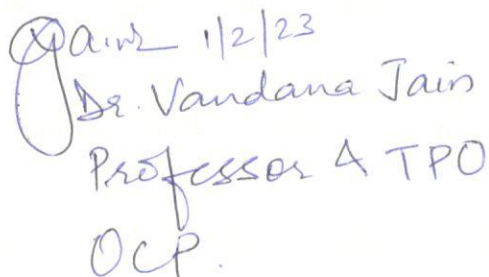 Jain 1/2/23
Dr. Vandana Jain
Professor & TPO
OCP.